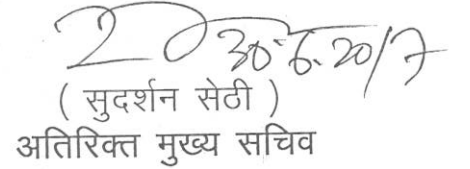 30.6.2017
( सुदर्शन सेठी )
अतिरिक्त मुख्य सचिव